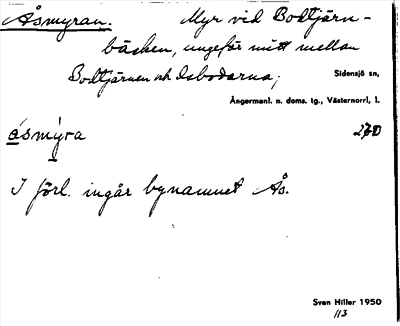 Åsmyran. Myr vid Bodtjärn-
bäcken, ungefär mitt mellan
Bodtjärnen och Åsbodarna;
Sidensjö sn,
Ångermanl. n. doms. tg., Västernorrl, l.
åsmýra 270
I förl. ingår bynamnet Ås.
Sven Hiller 1950
113